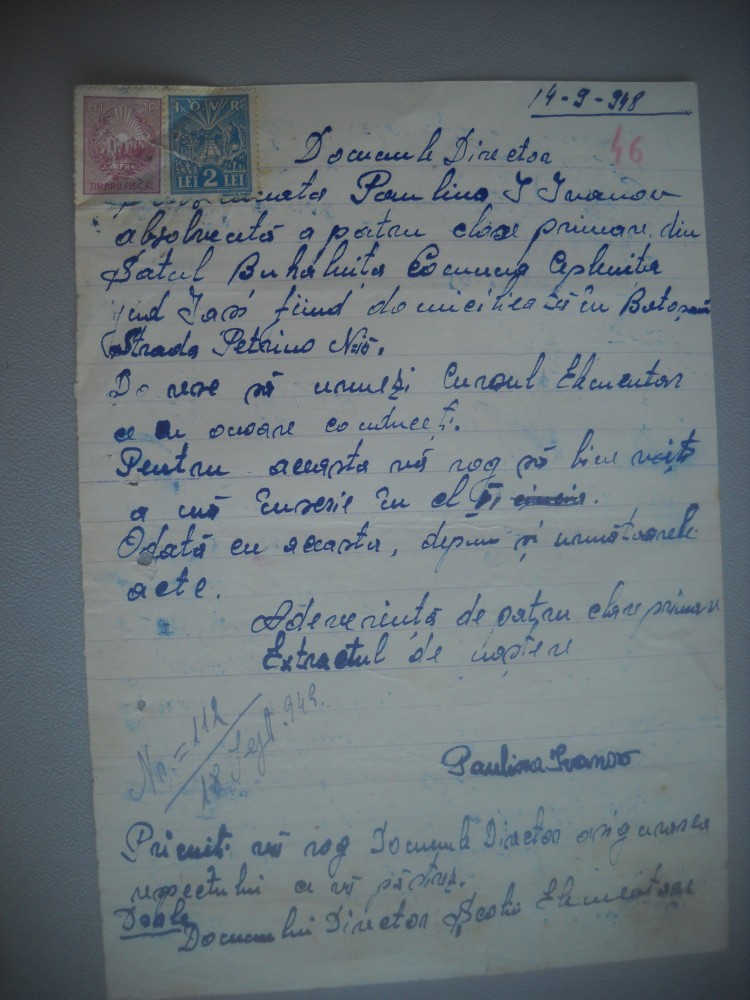 14-9-948
46
LEI
RPR
TIMBRU FISCAL
I.O.V.R.
LEI 2 LEI
Domnule Director
Paulina I Ivanov
absolventă a patru clase primare din
Satul Buhalnița Comuna Ceplenița
jud Iași fiind domiciliată în Botoșani
Strada Petrino
Doresc să urmez Cursul Elementar
ce cu onoare conduceți.
Pentru aceasta vă rog să bine voiți
a mă înscrie în cl
Odată cu aceasta, depun și următoarele
acte.
Adeverință de patru clase primare
Extractul de naștere
Nr. = 112
18 Sept. 948.
Paulina Ivanov
Primiți vă rog Domnule Director asigurarea
respectului ce vă păstrez.
Domnului Director Școlii Elementare